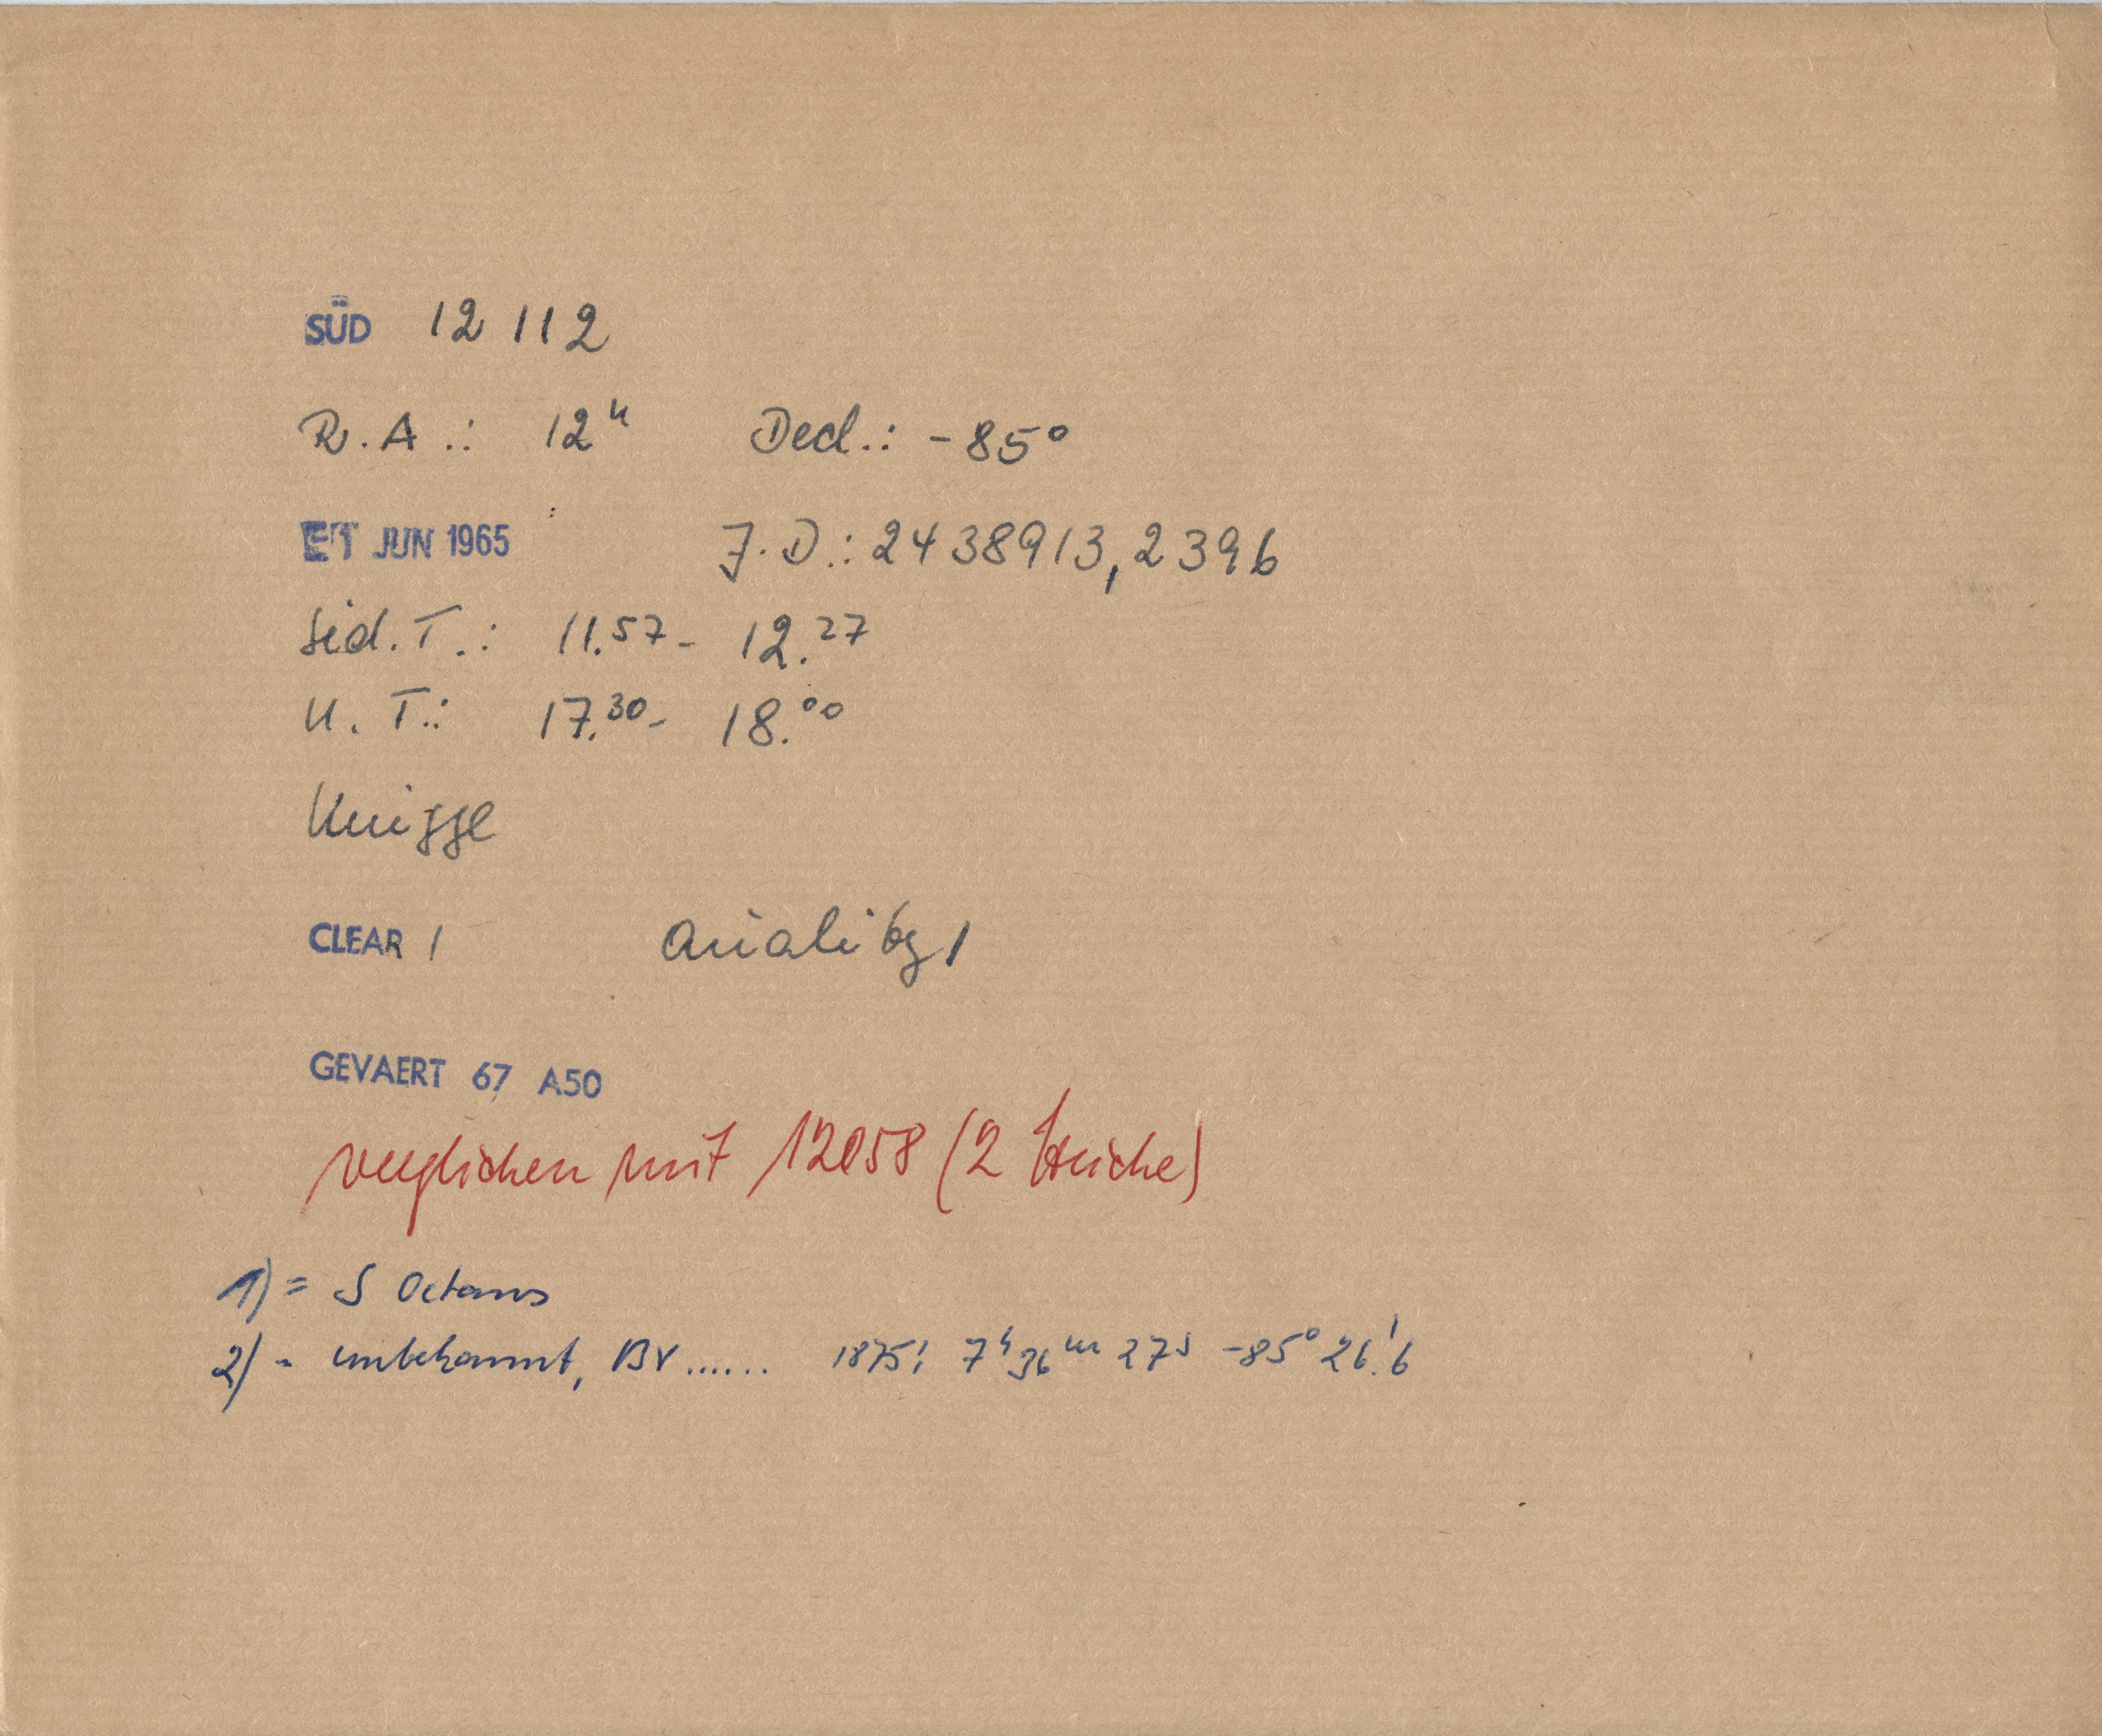 SÜD 12112
R.A.: 12ʰ Decl.: -85°
1 JUN 1965 J.D.: 2438913,2396
Sid.T.: 11.⁵⁷- 12.²⁷
U.T.: 17.³⁰- 18.⁰⁰
Knigge
CLEAR 1 Quality 1
GEVAERT 67 A50
verglichen mit 12058 (2 Striche)
1) = S Octans
2) = unbekannt, BV...... 1875: 7ʰ 36ᵐ 27ˢ -85° 26.'6